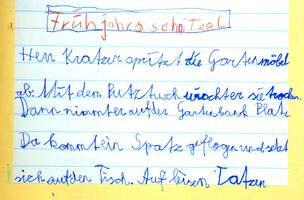 Frühjahrsschnitzel
Herr Kratzer spritzt die Gartenmöbel
ab. Mit dem Putztuch wischter sie trocken.
Dann nimmter auf der Gartenbank Platz.
Da kommt ein Spatz geflogen und setzt
sich auf den Tisch. Auf leisen Tatzen